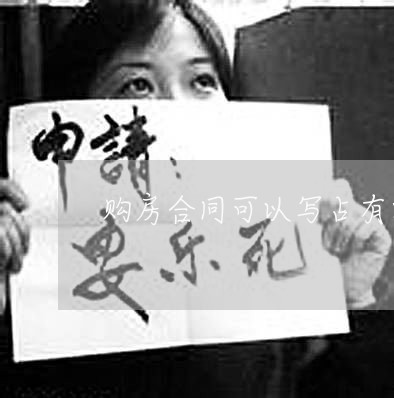 申請：
购房合同可以写占有
安乐死